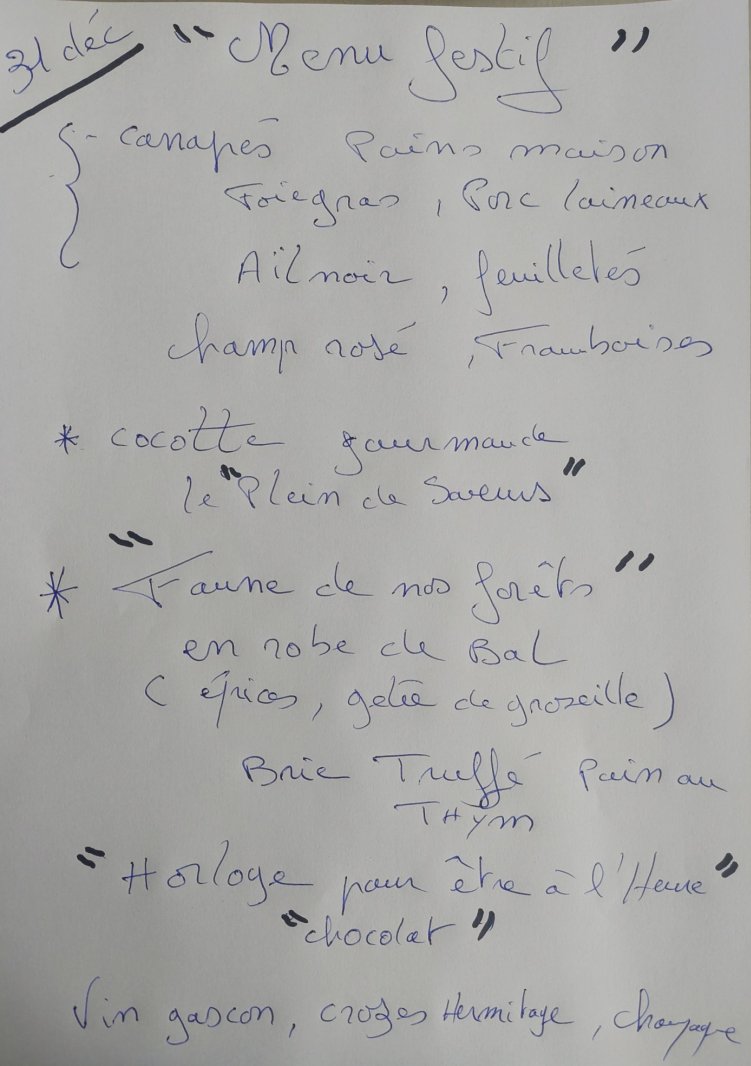 31 déc
" Menu festif "
- Canapés Pains maison
Foiegras, Porc laineaux
Ail noir, feuilletés
champ rosé, Framboises
* cocotte gourmande
le "Plein de Saveurs"
* "Faune de nos forêts"
en robe de Bal
(épices, gelée de groseille)
Brie Truffé Pain au
THYM
"Horloge pour être à l'Heure"
"chocolat"
Vin gascon, crozes Hermitage, champagne